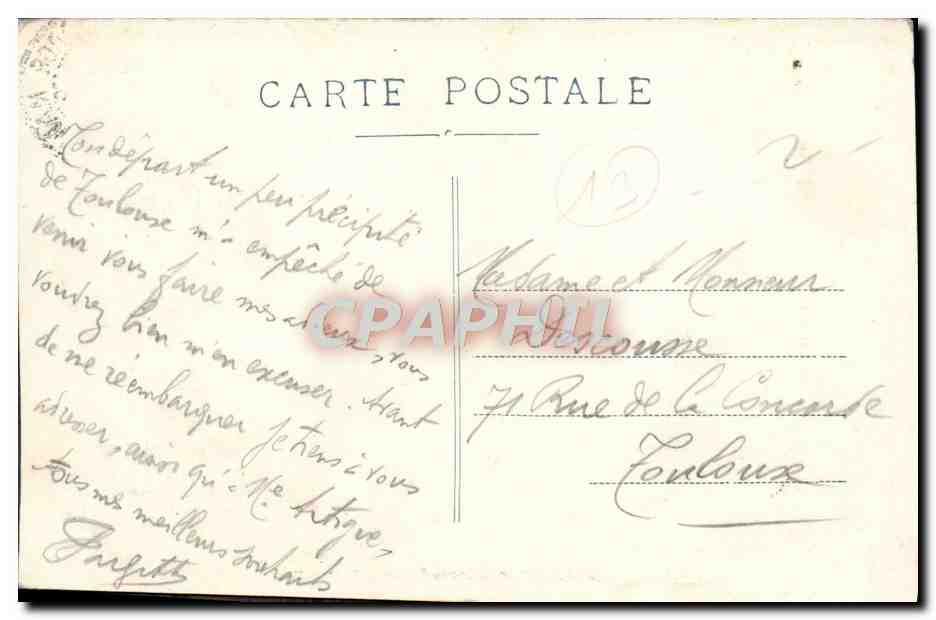 CARTE POSTALE
13
Mon départ un peu précipité
de Toulouse m'a empêché de
venir vous faire mes adieux, vous
voudrez bien m'en excuser. Avant
de me réembarquer je tiens à vous
adresser, ainsi qu'à Me Artigue,
tous mes meilleurs souhaits
Madame et Monsieur
Descousse
71 Rue de la Concorde
Toulouse
CPAPHIL